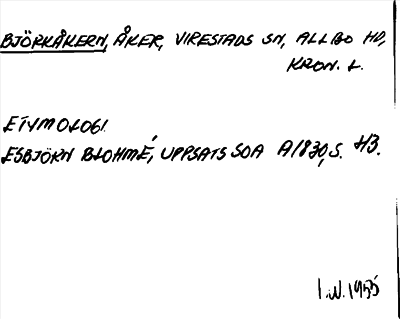 BJÖRKÅKERN, ÅKER, VIRESTADS SN, ALLBO HD,
KRON. L.
ETYMOLOGI.
ESBJÖRN BLOHMÉ, UPPSATS SOA A1830, S. 43.
I.W. 1955